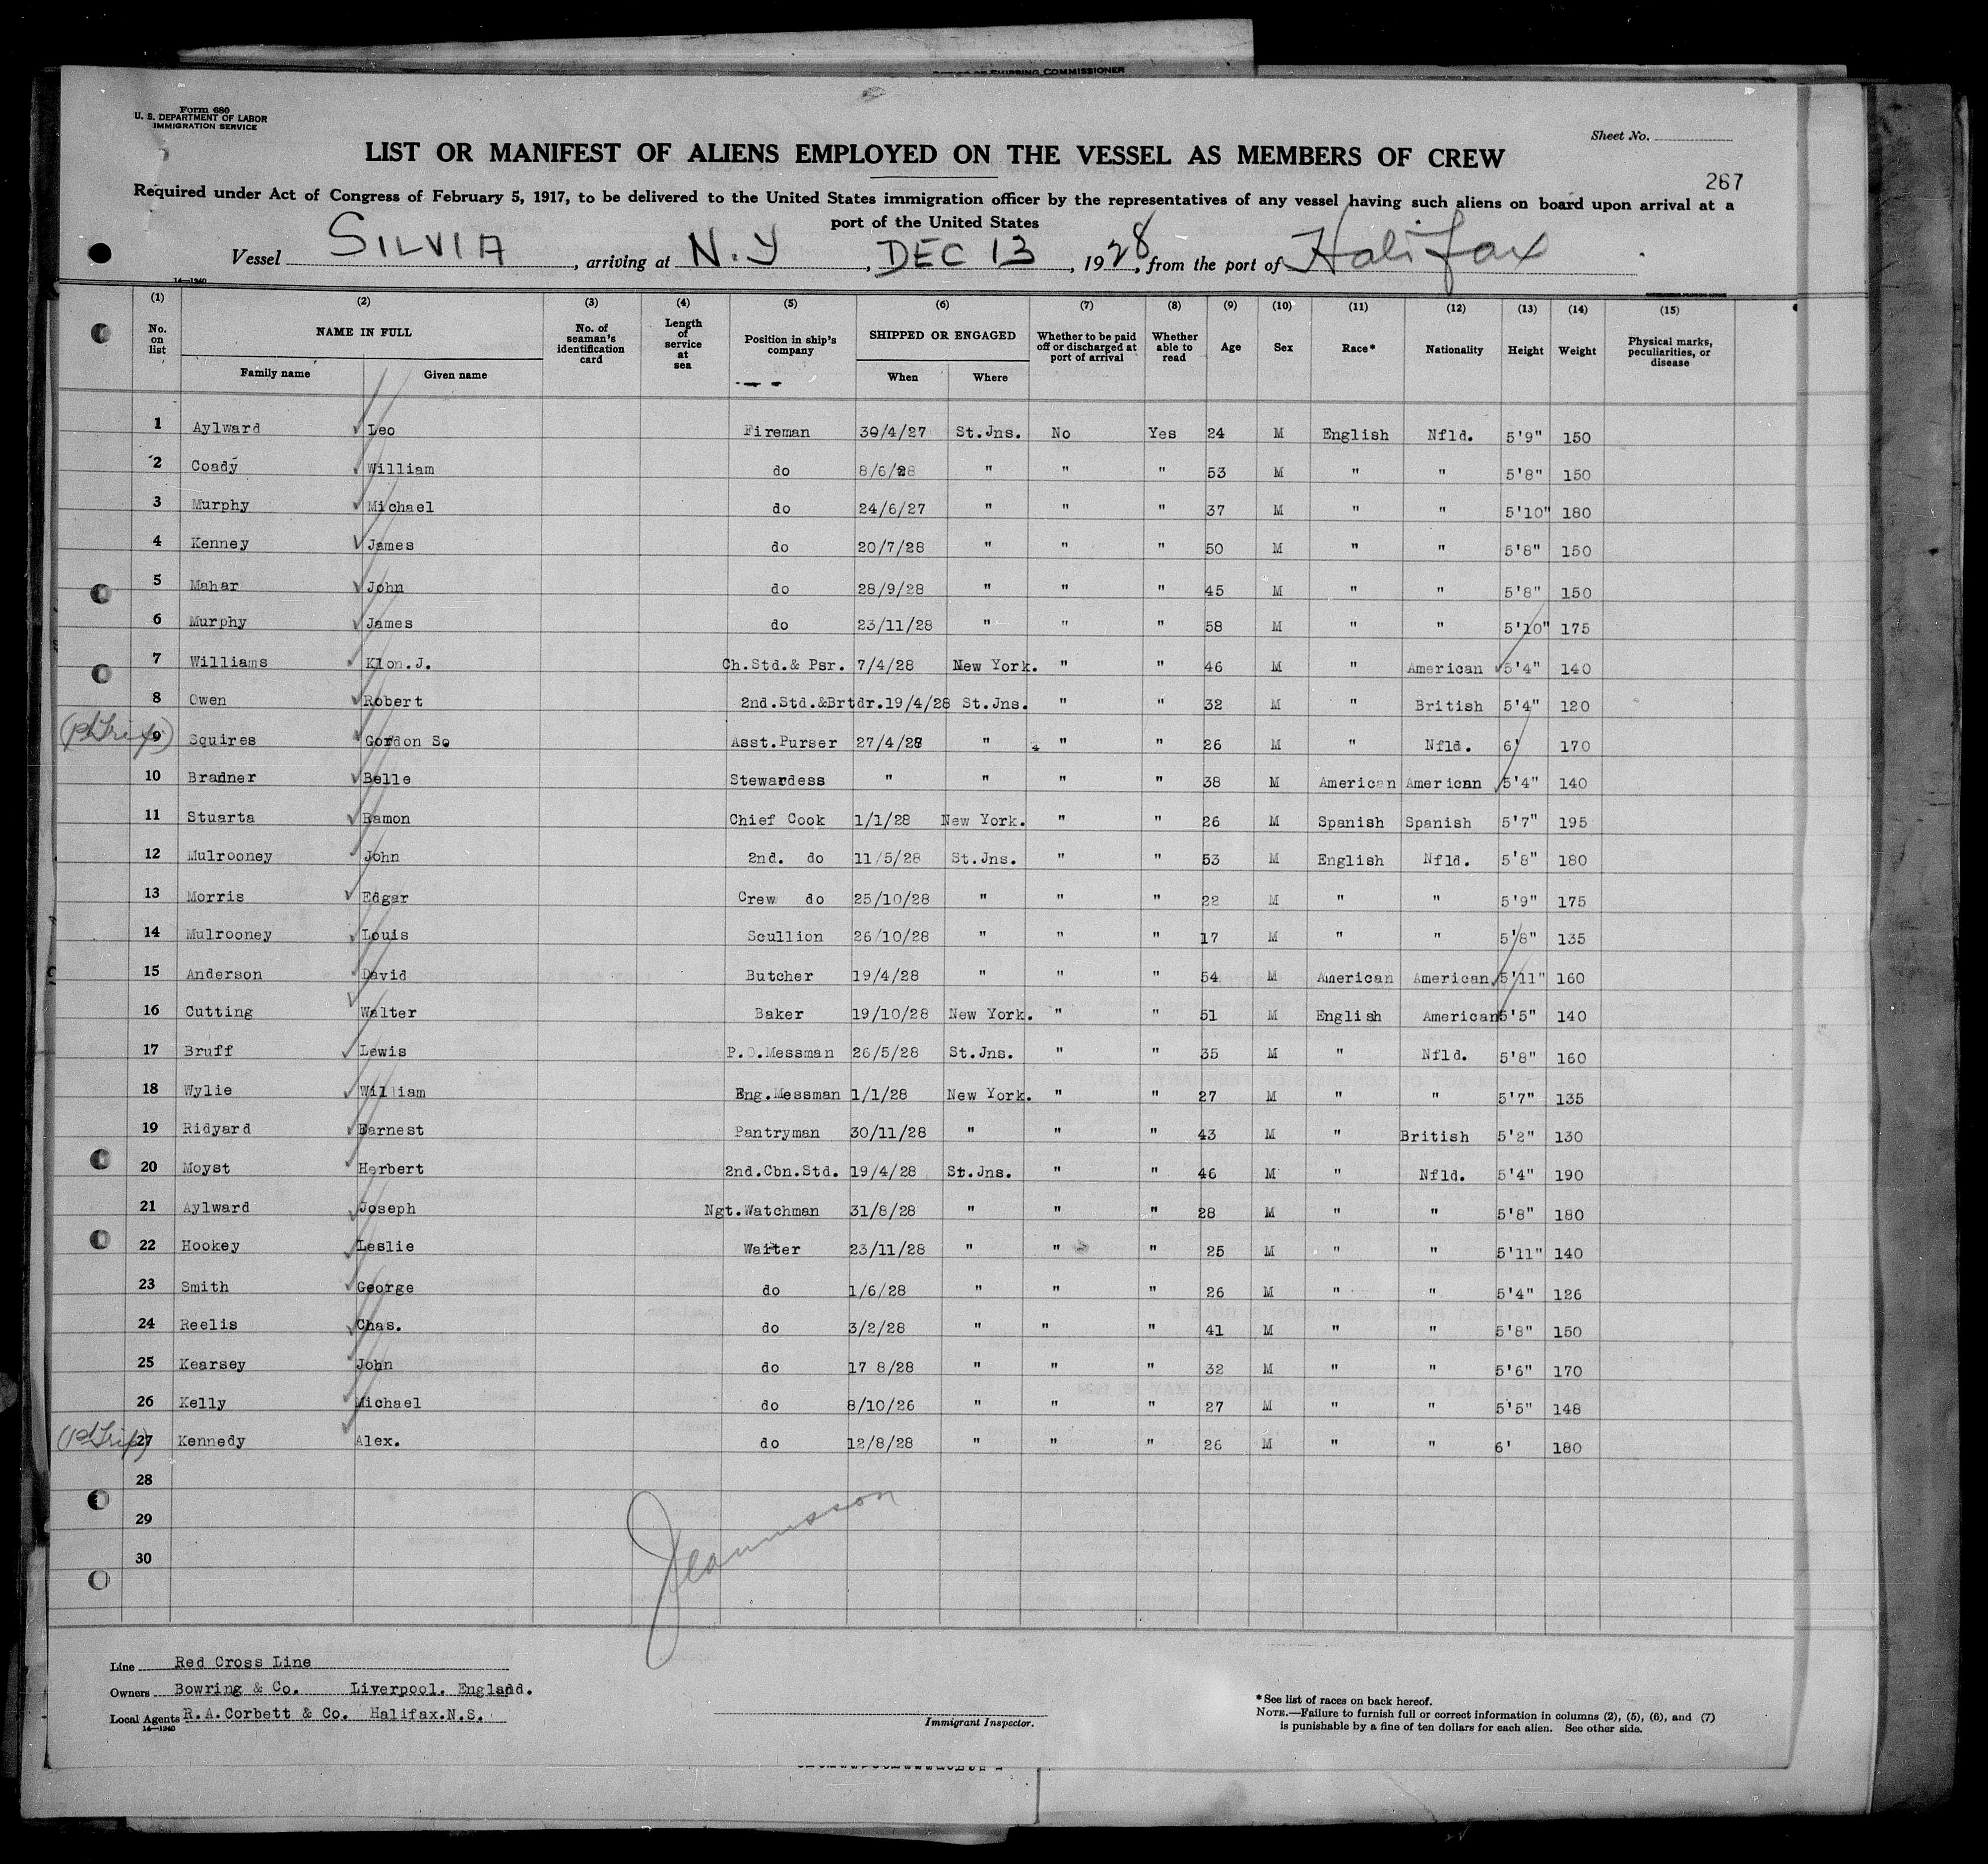 Form 680
U. S. DEPARTMENT OF LABOR
IMMIGRATION SERVICE
Sheet No.
LIST OR MANIFEST OF ALIENS EMPLOYED ON THE VESSEL AS MEMBERS OF CREW
267
Required under Act of Congress of February 5, 1917, to be delivered to the United States immigration officer by the representatives of any vessel having such aliens on board upon arrival at a
port of the United States
Vessel SILVIA, arriving at N.Y, DEC 13, 1928, from the port of Halifax
14—1240
(1) (2) (3) (4) (5) (6) (7) (8) (9) (10) (11) (12) (13) (14) (15)
No. on list NAME IN FULL No. of seaman's identification card Length of service at sea Position in ship's company SHIPPED OR ENGAGED Whether to be paid off or discharged at port of arrival Whether able to read Age Sex Race* Nationality Height Weight Physical marks, peculiarities, or disease
Family name Given name When Where
1 Aylward Leo Fireman 30/4/27 St.Jns. No Yes 24 M English Nfld. 5'9" 150
2 Coady William do 8/6/28 " " " 53 M " " 5'8" 150
3 Murphy Michael do 24/6/27 " " " 37 M " " 5'10" 180
4 Kenney James do 20/7/28 " " " 50 M " " 5'8" 150
5 Mahar John do 28/9/28 " " " 45 M " " 5'8" 150
6 Murphy James do 23/11/28 " " " 58 M " " 5'10" 175
7 Williams Klon.J. Ch.Std.& Psr. 7/4/28 New York. " " 46 M " American 5'4" 140
8 Owen Robert 2nd.Std.&Brtdr. 19/4/28 St.Jns. " " 32 M " British 5'4" 120
(1st Trip) 9 Squires Gordon So Asst.Purser 27/4/28 " " " 26 M " Nfld. 6' 170
10 Bradner Belle Stewardess " " " " 38 M American American 5'4" 140
11 Stuarta Ramon Chief Cook 1/1/28 New York. " " 26 M Spanish Spanish 5'7" 195
12 Mulrooney John 2nd. do 11/5/28 St.Jns. " " 53 M English Nfld. 5'8" 180
13 Morris Edgar Crew do 25/10/28 " " " 22 M " " 5'9" 175
14 Mulrooney Louis Scullion 26/10/28 " " " 17 M " " 5'8" 135
15 Anderson David Butcher 19/4/28 " " " 54 M American American 5'11" 160
16 Cutting Walter Baker 19/10/28 New York. " " 51 M English American 5'5" 140
17 Bruff Lewis P.O.Messman 26/5/28 St.Jns. " " 35 M " Nfld. 5'8" 160
18 Wylie William Eng.Messman 1/1/28 New York. " " 27 M " " 5'7" 135
19 Ridyard Earnest Pantryman 30/11/28 " " " 43 M " British 5'2" 130
20 Moyst Herbert 2nd.Cbn.Std. 19/4/28 St.Jns. " " 46 M " Nfld. 5'4" 190
21 Aylward Joseph Ngt.Watchman 31/8/28 " " " 28 M " " 5'8" 180
22 Hookey Leslie Waiter 23/11/28 " " " 25 M " " 5'11" 140
23 Smith George do 1/6/28 " " " 26 M " " 5'4" 126
24 Reelis Chas. do 3/2/28 " " " 41 M " " 5'8" 150
25 Kearsey John do 17 8/28 " " " 32 M " " 5'6" 170
26 Kelly Michael do 8/10/26 " " " 27 M " " 5'5" 148
(1st Trip) 27 Kennedy Alex. do 12/8/28 " " " 26 M " " 6' 180
28
29
30
Line Red Cross Line
Owners Bowring & Co. Liverpool. England.
Local Agents R.A.Corbett & Co. Halifax.N.S.
14—1240
Immigrant Inspector.
*See list of races on back hereof.
NOTE.—Failure to furnish full or correct information in columns (2), (5), (6), and (7)
is punishable by a fine of ten dollars for each alien. See other side.